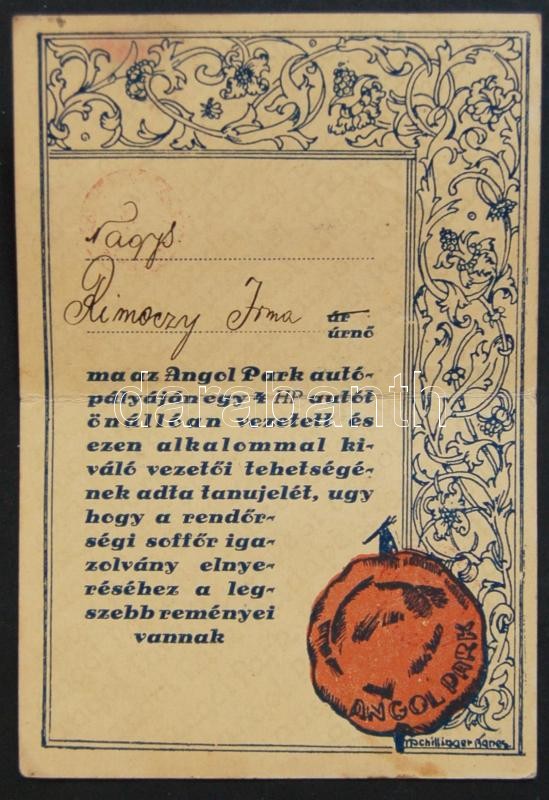 Nagys.
Rimoczy Irma úr
úrnő
ma az Angol Park autó-
pályáján egy 4 HP autót
önállóan vezetett és
ezen alkalommal ki-
váló vezetői tehetségé-
nek adta tanujelét, ugy
hogy a rendőr-
ségi soffőr iga-
zolvány elnye-
réséhez a leg-
szebb reményei
vannak
ANGOL PARK
darabanth